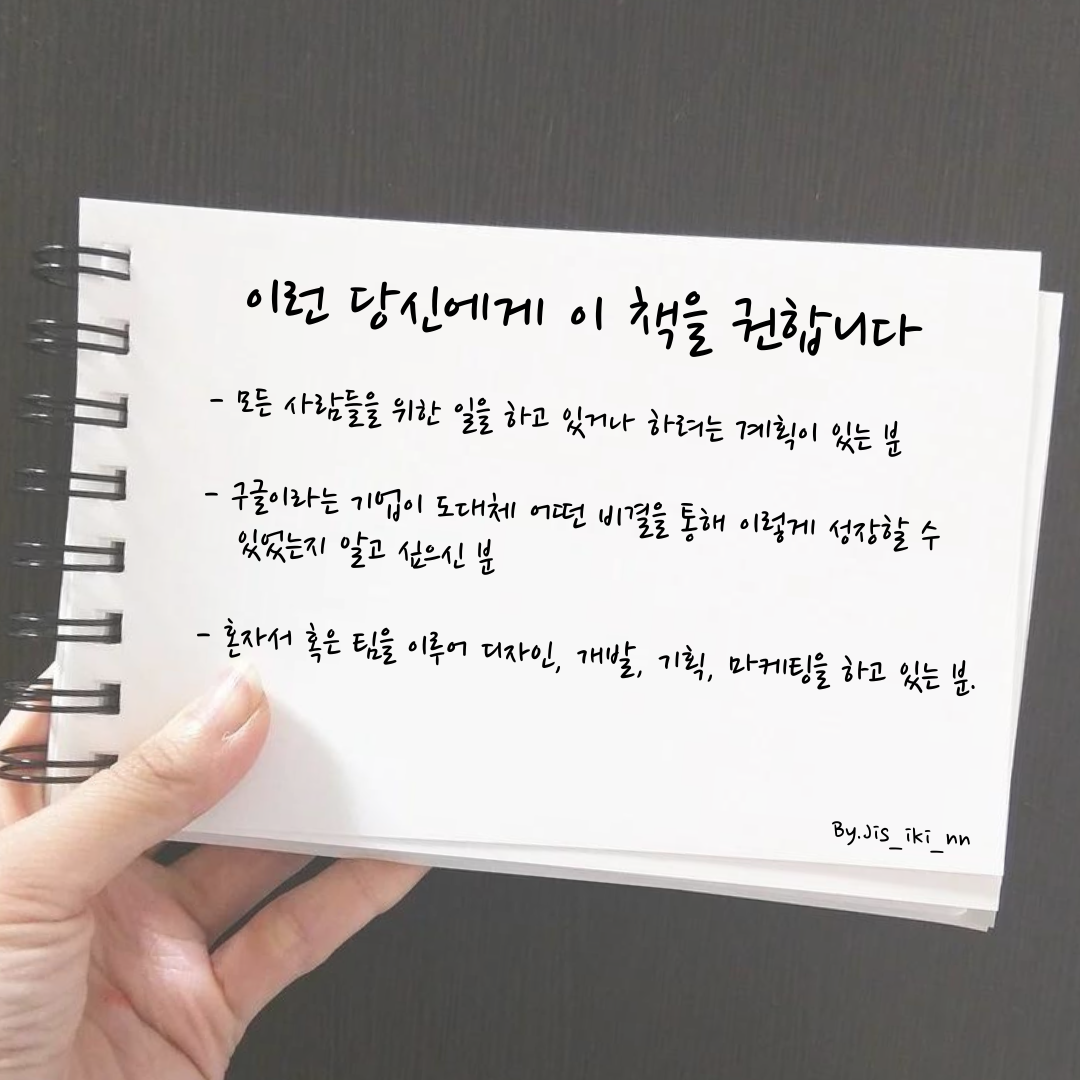 이런 당신에게 이 책을 권합니다
- 모든 사람들을 위한 일을 하고 있거나 하려는 계획이 있는 분
- 구글이라는 기업이 도대체 어떤 비결을 통해 이렇게 성장할 수
있었는지 알고 싶으신 분
- 혼자서 혹은 팀을 이루어 디자인, 개발, 기획, 마케팅을 하고 있는 분.
By.Jis_iki_nn